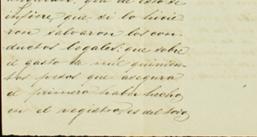 aseguran, que de esto se
infiere, que si lo hicie
ron salvaron los con
ductos legales: que sobre
el gasto la mil quinien
tos pesos que asegura
el primero haber hecho
en el registro, es del todo